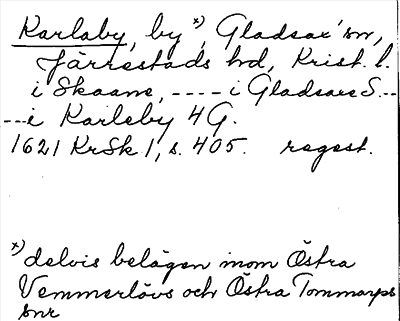 Karlaby, by *), Gladsax' sn,
Järrestads hd, Krist. l.
i Skaane, ---- i Gladsaxe S. --
--- i Karleby 4 G.
1621 KrSk 1, s. 405. regest.
*) delvis belägen inom Östra
Vemmerlövs och Östra Tommarps
snr